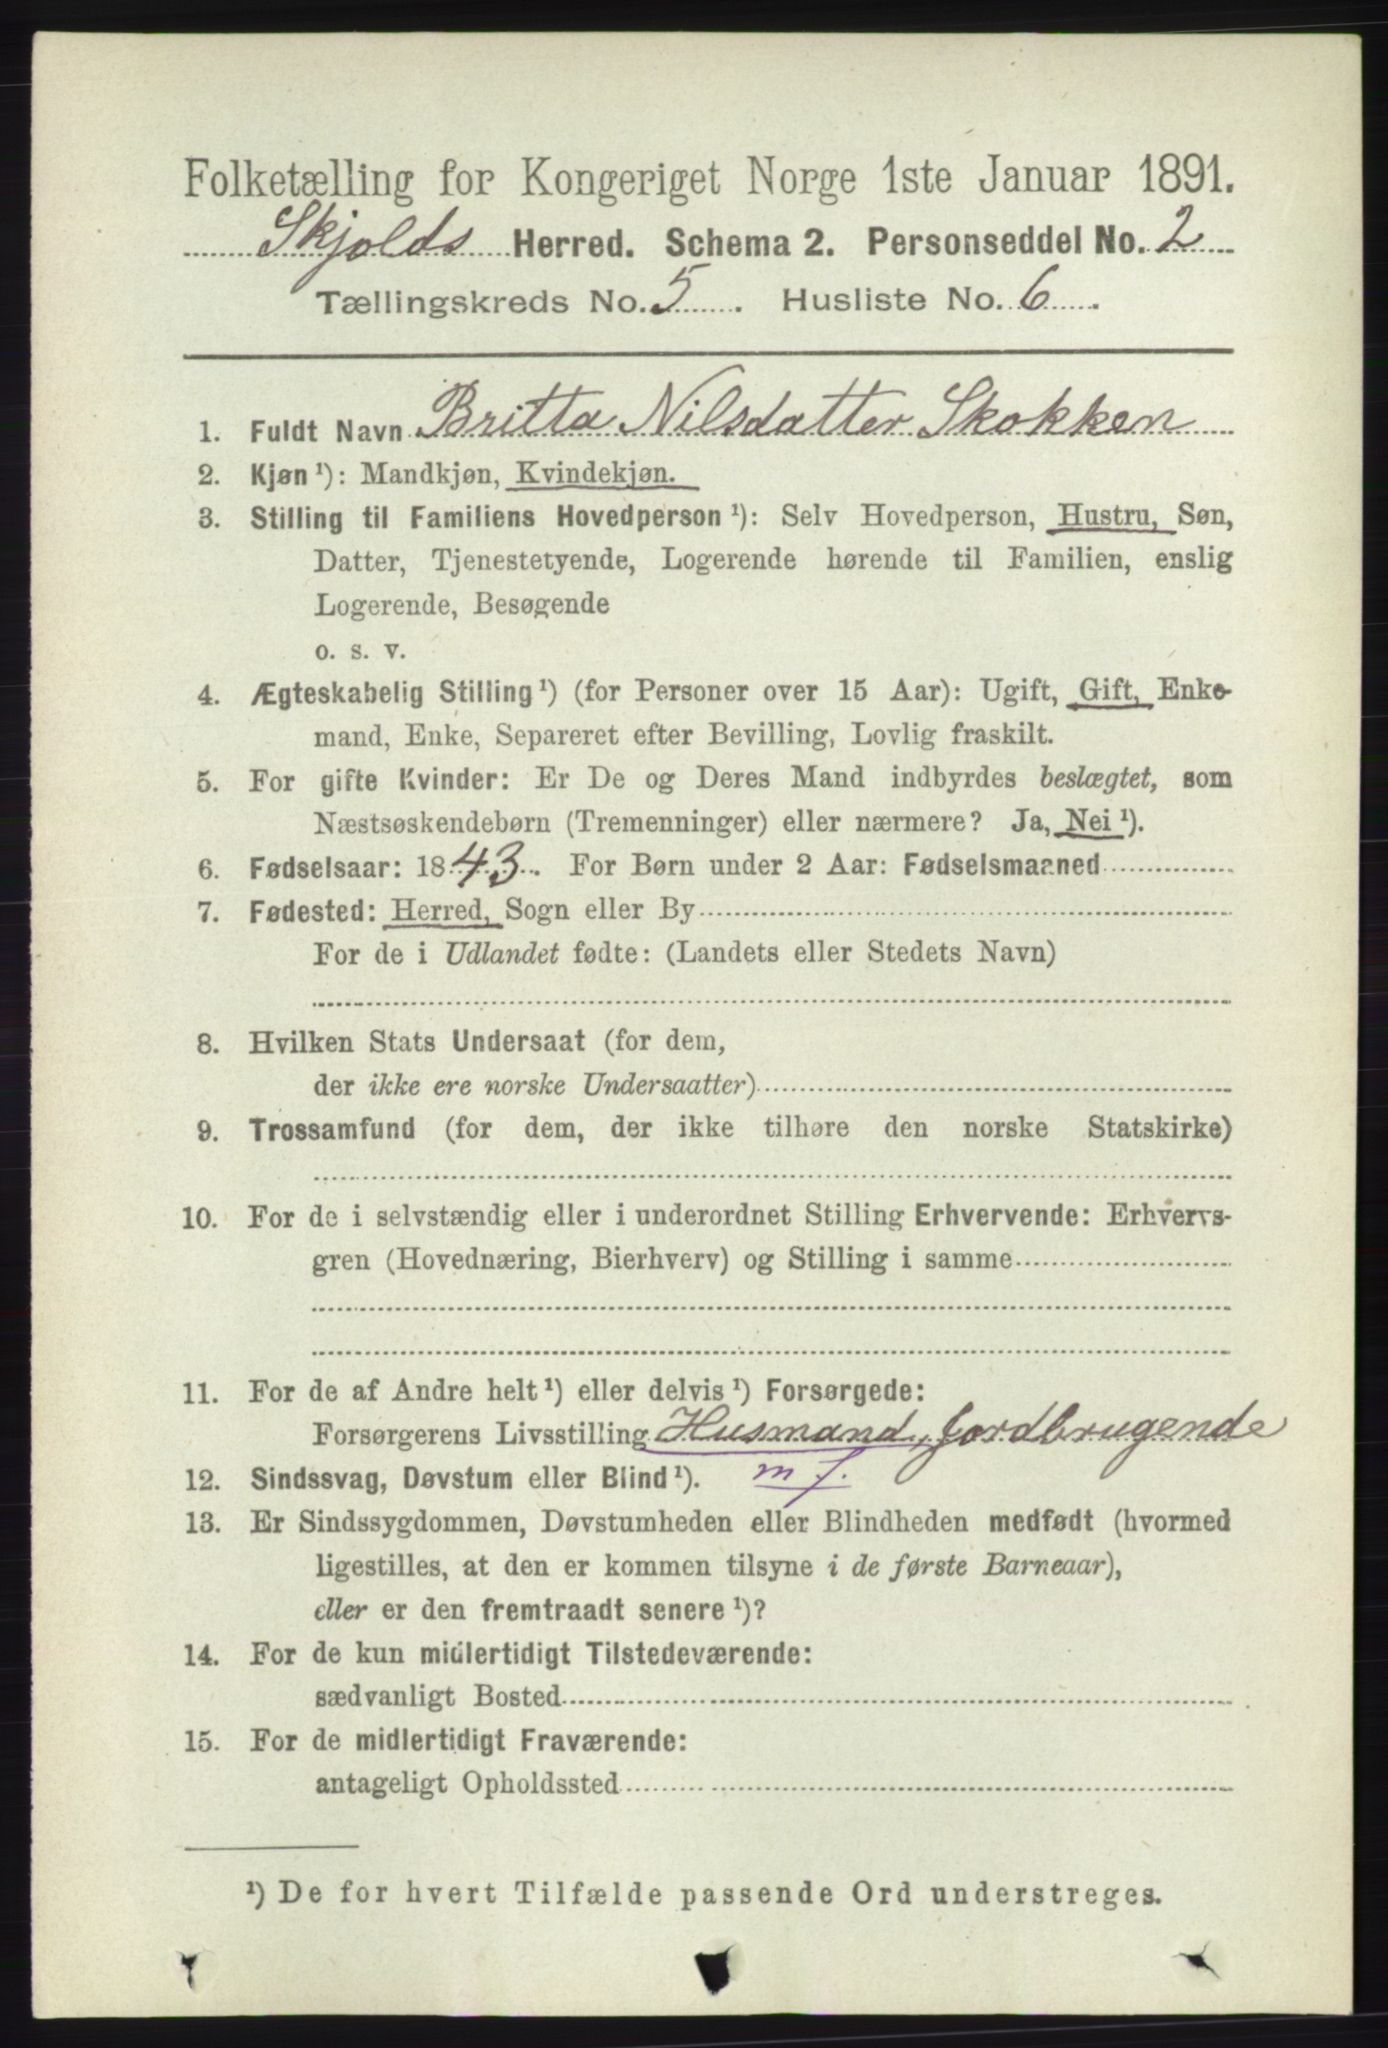 Folketælling for Kongeriget Norge 1ste Januar 1891.
Skjolds Herred. Schema 2. Personseddel No. 2
Tællingskreds No. 5. Husliste No. 6.
1. Fuldt Navn Britta Nilsdatter Skokken
2. Kjøn ¹): Mandkjøn, Kvindekjøn.
3. Stilling til Familiens Hovedperson ¹): Selv Hovedperson, Hustru, Søn,
Datter, Tjenestetyende, Logerende hørende til Familien, enslig
Logerende, Besøgende
o. s. v.
4. Ægteskabelig Stilling ¹) (for Personer over 15 Aar): Ugift, Gift, Enke-
mand, Enke, Separeret efter Bevilling, Lovlig fraskilt.
5. For gifte Kvinder: Er De og Deres Mand indbyrdes beslægtet, som
Næstsøskendebørn (Tremenninger) eller nærmere? Ja, Nei ¹).
6. Fødselsaar: 1843. For Børn under 2 Aar: Fødselsmaaned
7. Fødested: Herred, Sogn eller By
For de i Udlandet fødte: (Landets eller Stedets Navn)
8. Hvilken Stats Undersaat (for dem,
der ikke ere norske Undersaatter)
9. Trossamfund (for dem, der ikke tilhøre den norske Statskirke)
10. For de i selvstændig eller i underordnet Stilling Erhvervende: Erhvervs-
gren (Hovednæring, Bierhverv) og Stilling i samme
11. For de af Andre helt ¹) eller delvis ¹) Forsørgede:
Forsørgerens Livsstilling Husmand, Jordbrugende
12. Sindssvag, Døvstum eller Blind ¹). m f.
13. Er Sindssygdommen, Døvstumheden eller Blindheden medfødt (hvormed
ligestilles, at den er kommen tilsyne i de første Barneaar),
eller er den fremtraadt senere ¹)?
14. For de kun midlertidigt Tilstedeværende:
sædvanligt Bosted
15. For de midlertidigt Fraværende:
antageligt Opholdssted
¹) De for hvert Tilfælde passende Ord understreges.